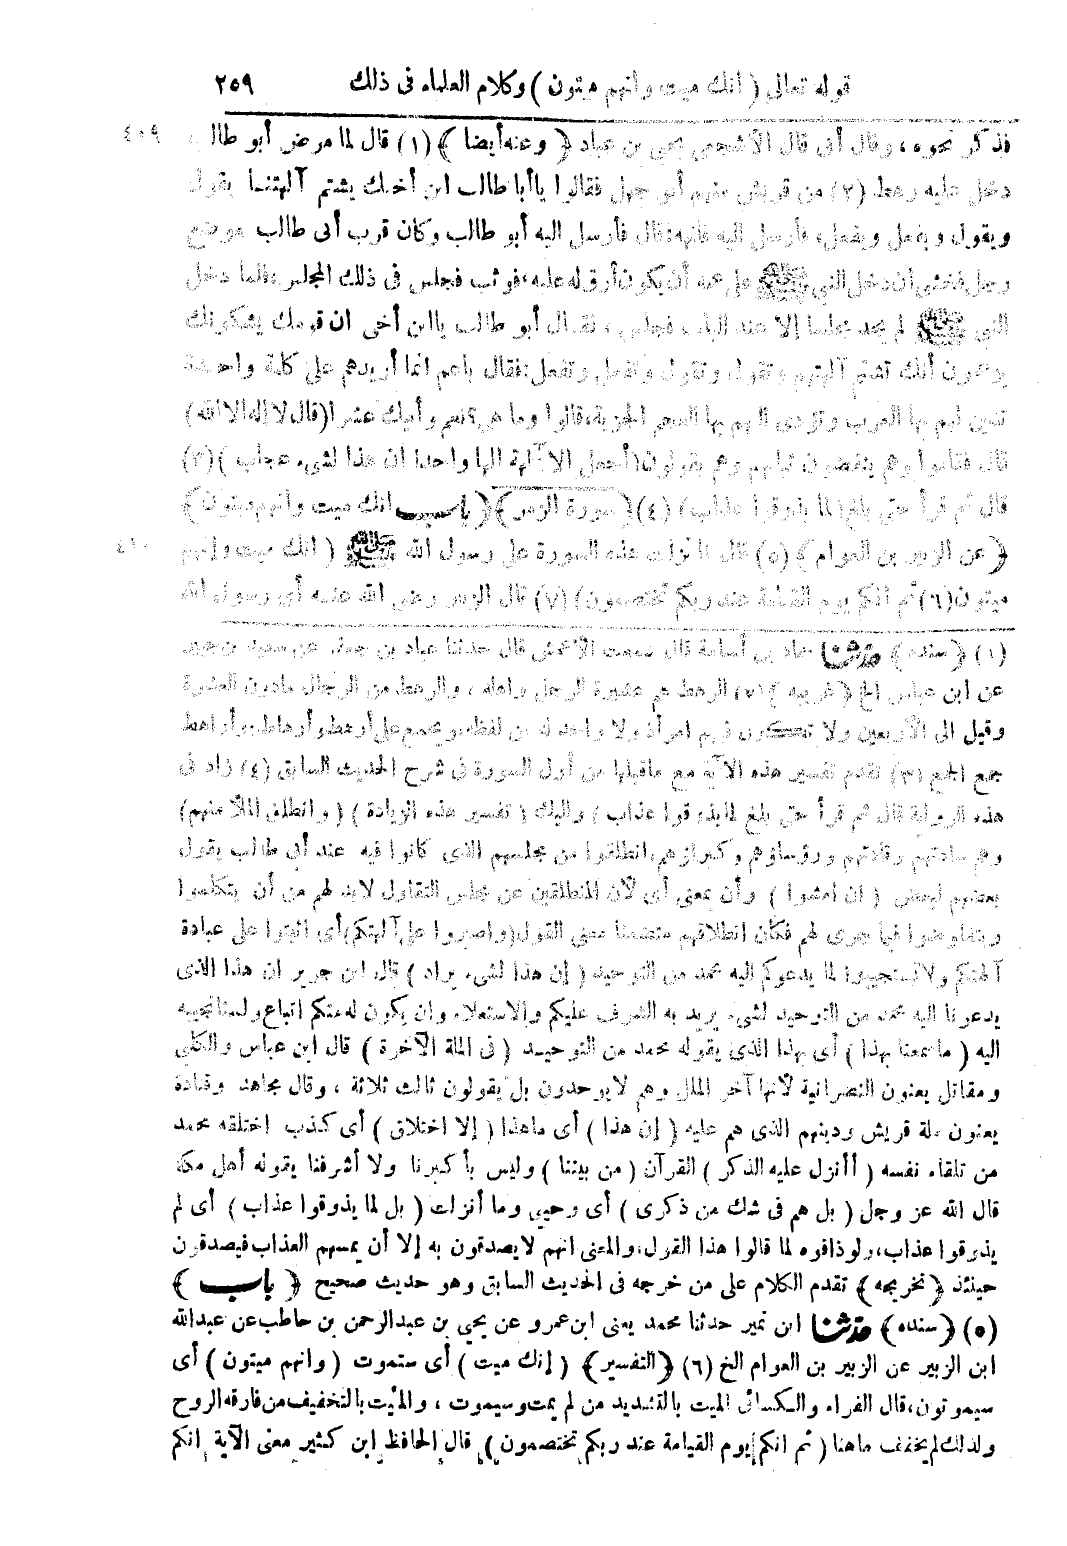 قوله تعالى ( انك ميت وانهم ميتون ) وكلام العلماء فى ذلك ٢٥٩
فذكر نحوه ، وقال أبى قال الأشجعى يحيى بن عباد ﴿ وعنه أيضا ﴾ (١) قال لما مرض أبو طالب ٤٠٩
دخل عليه رهط (٢) من قريش منهم أبو جهل فقالوا يا أبا طالب ابن أخيك يشتم آلهتنا يقول
ويقول ويفعل ويفعل، فأرسل اليه فانهه؛ قال فأرسل اليه أبو طالب وكان قرب أبى طالب موضع
رجل فخشى أن دخل النبى ﷺ على عمه أن يكون أرق له عليه، فوثب فجلس فى ذلك المجلس، فلما دخل
النبى ﷺ لم يجد مجلسا إلا عند الباب فجلس ، فقال أبو طالب يا ابن أخى ان قومك يشكونك
يزعمون أنك تشتم آلهتهم وتقول وتقول وتفعل وتفعل؛ فقال يا عم انما أريدهم على كلمة واحدة
تدين لهم بها العرب وتؤدى اليهم بها العجم الجزية، قالوا وما هى؟ نعم وأبيك عشرا (قال لا إله الا الله)
قال فقاموا وهم ينفضون ثيابهم وهم يقولون (أجعل الآلهة الها واحدا ان هذا لشىء عجاب ) (٣)
قال ثم قرأ حتى بلغ (لما يذوقوا عذاب) (٤) ﴿ سورة الزمر ﴾ ﴿ باب انك ميت وانهم ميتون ﴾
﴿ عن الزبير بن العوام ﴾ (٥) قال لما نزلت هذه السورة على رسول الله ﷺ ( انك ميت وإنهم ٤١٠
ميتون (٦) ثم انكم يوم القيامة عند ربكم تختصمون) (٧) قال الزبير رضى الله عنه أى رسول الله
(١) ﴿ سنده ﴾ حدثنا حماد بن أسامة قال سمعت الأعمش قال حدثنا عباد بن جعفر عن سعيد بن جبير
عن ابن عباس الخ ﴿ غريبه ﴾ (٢) الرهط هم عشيرة الرجل وأهله ، والرهط من الرجال مادون العشرة
وقيل الى الأربعين ولا تكون فيهم امرأة ولا واحد له من لفظه، ويجمع على أرهط وأرهاط، وأراهط
جمع الجمع (٣) تقدم تفسير هذه الآية مع ماقبلها من أول السورة فى شرح الحديث السابق (٤) زاد فى
هذه الرواية قال ثم قرأ حتى بلغ لما يذوقوا عذاب ) واليك ( تفسير هذه الزيادة ) ( وانطلق الملأ منهم)
وهم ساداتهم وقادتهم ورؤساؤهم وكبراؤهم، انطلقوا من مجلسهم الذى كانوا فيه عند أبى طالب يقول
بعضهم لبعض ( ان امشوا ) وأن بمعنى أى لأن المنطلقين عن مجلس التقاول لابد لهم من أن يتكلموا
ويتفاوضوا فيما جرى لهم فكأن انطلاقهم متضمنا معنى القول (واصبروا على آلهتكم) أى اثبتوا على عبادة
آلهتكم ولا تستجيبوا لما يدعوكم اليه محمد من التوحيد ( إن هذا لشىء يراد ) قال ابن جرير ان هذا الذى
يدعونا اليه محمد من التوحيد لشىء يريد به الشرف عليكم والاستعلاء وان يكون له منكم اتباع ولسنا نجيبه
اليه ( ما سمعنا بهذا ) أى بهذا الذى يقوله محمد من التوحيد ( فى الملة الآخرة ) قال ابن عباس والكلبى
ومقاتل يعنون النصرانية لأنها آخر الملل وهم لا يوحدون بل يقولون ثالث ثلاثة ، وقال مجاهد وقتادة
يعنون ملة قريش ودينهم الذى هم عليه ( إن هذا ) أى ماهذا ( إلا اختلاق ) أى كذب اختلقه محمد
من تلقاء نفسه ( أأنزل عليه الذكر ) القرآن ( من بيننا ) وليس بأكبرنا ولا أشرفنا يقوله أهل مكة
قال الله عز وجل ( بل هم فى شك من ذكرى ) أى وحيى وما أنزلت ( بل لما يذوقوا عذاب ) أى لم
يذوقوا عذاب، ولو ذاقوه لما قالوا هذا القول، والمعنى انهم لا يصدقون به إلا أن يمسهم العذاب فيصدقون
حينئذ ﴿ تخريجه ﴾ تقدم الكلام على من خرجه فى الحديث السابق وهو حديث صحيح ﴿ باب ﴾
(٥) ﴿ سنده ﴾ حدثنا ابن نمير حدثنا محمد يعنى ابن عمرو عن يحيى بن عبدالرحمن بن حاطب عن عبدالله
ابن الزبير عن الزبير بن العوام الخ (٦) ﴿ التفسير ﴾ ( إنك ميت ) أى ستموت ( وانهم ميتون ) أى
سيموتون، قال الفراء والكسائى الميت بالتشديد من لم يمت وسيموت ، والميت بالتخفيف من فارقه الروح
ولذلك لم يخفف ماهنا ( ثم انكم يوم القيامة عند ربكم تختصمون ) قال الحافظ ابن كثير معنى الآية انكم